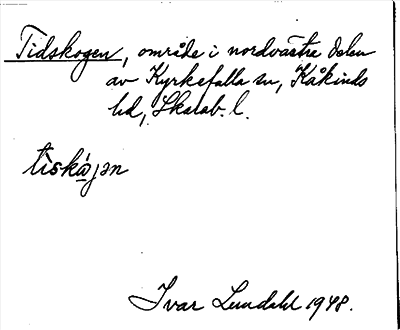 Tidskogen, område i nordvästra delen
av Kyrkefalla sn, Kåkinds
hd, Skarab. l.
tiskójən
Ivar Lundahl 1948.